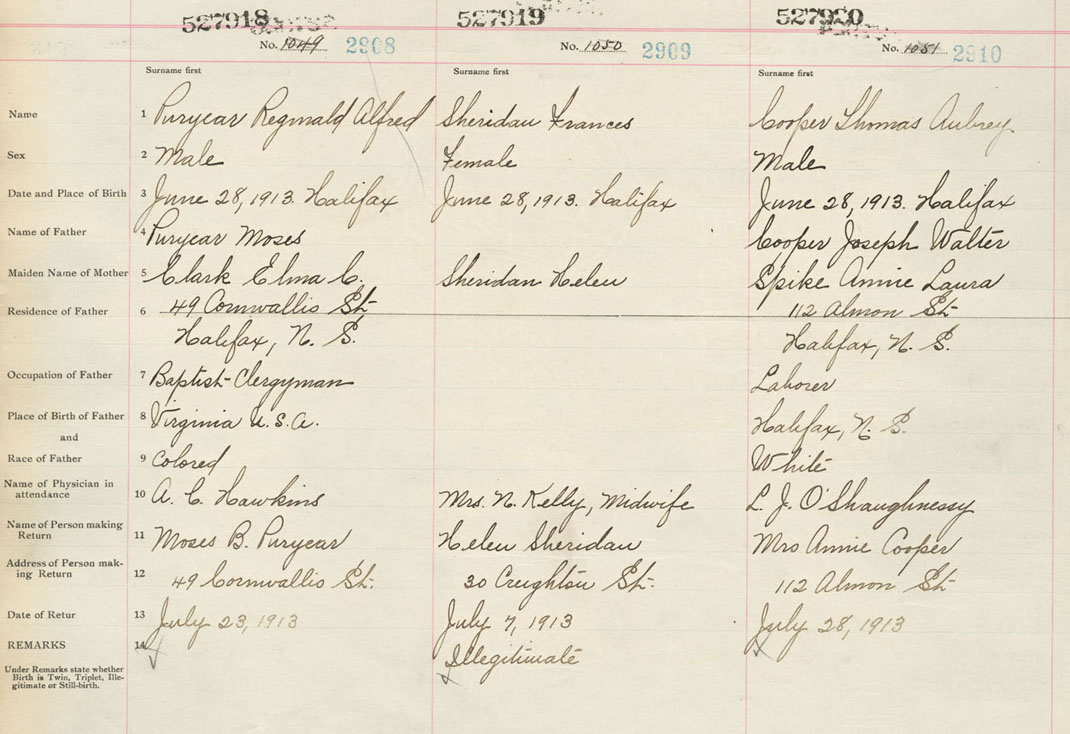 527918 527919 527920
No. 1049 2908 No. 1050 2909 No. 1051 2910
Surname first Surname first Surname first
Name 1 Puryear Reginald Alfred Sheridan Frances Cooper Thomas Aubrey
Sex 2 Male Female Male
Date and Place of Birth 3 June 28, 1913. Halifax June 28, 1913. Halifax June 28, 1913. Halifax
Name of Father 4 Puryear Moses Cooper Joseph Walter
Maiden Name of Mother 5 Clark Elma C. Sheridan Helen Spike Annie Laura
Residence of Father 6 49 Cornwallis St. 112 Almon St.
Halifax, N. S. Halifax, N. S.
Occupation of Father 7 Baptist Clergyman Laborer
Place of Birth of Father 8 Virginia U.S.A. Halifax, N. S.
and
Race of Father 9 Colored White
Name of Physician in
attendance 10 A. C. Hawkins Mrs. N. Kelly, Midwife L. J. O'Shaughnessy
Name of Person making
Return 11 Moses B. Puryear Helen Sheridan Mrs Annie Cooper
Address of Person mak-
ing Return 12 49 Cornwallis St. 30 Creighton St. 112 Almon St.
Date of Retur 13 July 23, 1913 July 7, 1913 July 28, 1913
REMARKS 14 Illegitimate
Under Remarks state whether
Birth is Twin, Triplet, Ille-
gitimate or Still-birth.